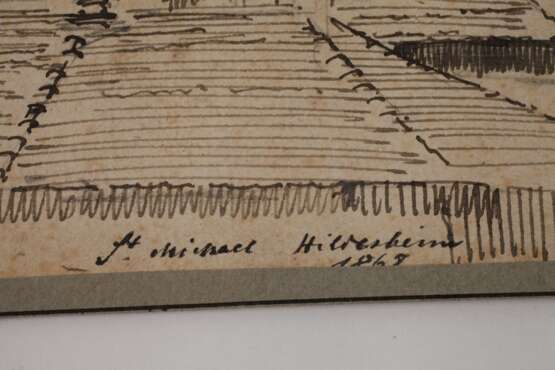 St Michael Hildesheim
1868